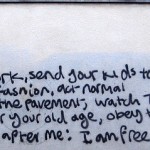 ork, send your kids to
fashion, act normal
the pavement, watch T
r your old age, obey t
after me: I am free